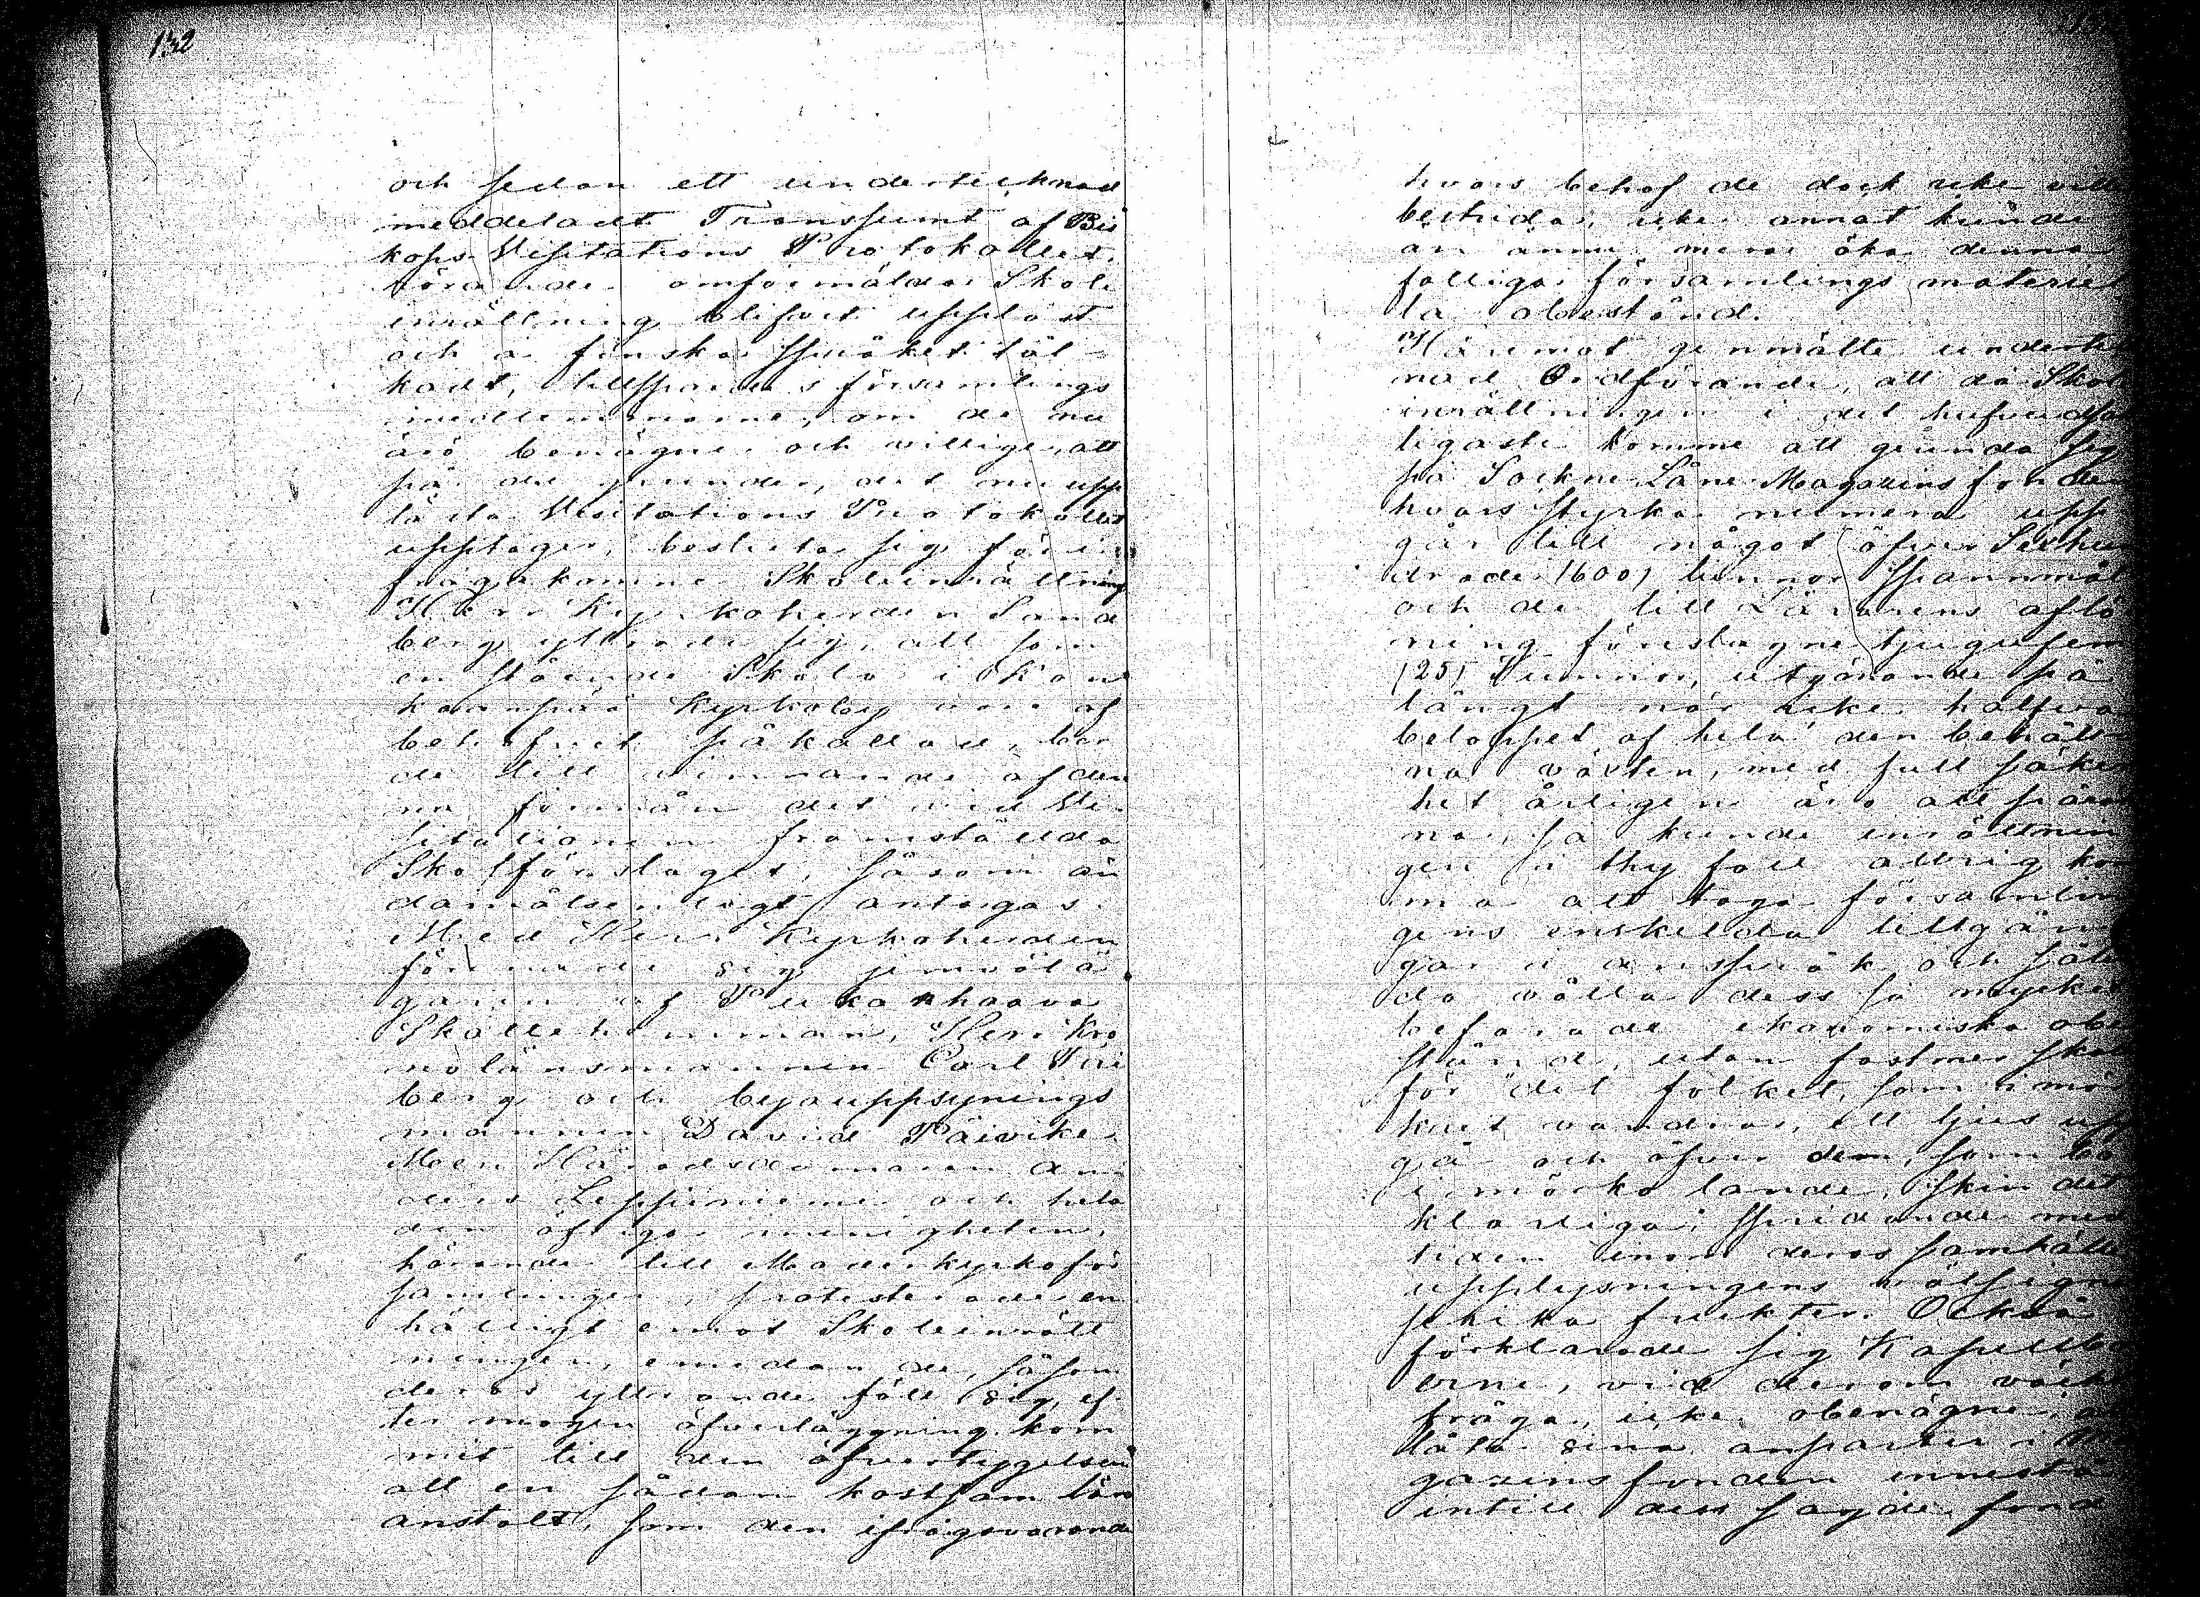 132
och sedan ett undertecknad
meddeladt Transsumt af Bis
kops Visitations Protokollet,
rörande omförmälda Skole
inrättning blifvit uppläst
och å finska språket tol-
kadt, tillspordes församlings
medlemmarne, om de nu
äro benägne och villige, att
på de grunder, det nu upp
lästa Visitations Protokollet
upptager, besluta sig för i
frågakomne Skoleinrättning
Herr Kyrkoherden Sand
berg yttrade sig, att som
en stående Skola i Kan
kaanpää Kyrkoby vore af
behofvet påkallad, bor
de till vinnande af den
na förmån det vid Vi
sitationen framstälda
Skolförslaget, såsom än
damålsenligt antagas.
Med Herr Kyrkoherden
förenade sig jemväl ä
garen af
Skattehemman, Herr Kro
nolänsmannen Carl Fri
berg och byauppsynings
mannen David Päivike.
Men Häradsdomaren An
ders Leppiniemi och hela
den öfriga menigheten,
hörande till Moderkyrkoför
samlingen, protesterade en
hälligt emot Skoleinrätt
ningen, emedan de, såsom
deras yttrande föll sig, ef
ter mogen öfverläggning kom
mit till den öfvertygelsen
att en sådan kostsam läro
anstalt, som den ifrågavarande
hvars behof de dock icke ville
bestrida, icke annat kunde
än ännu mera öka denna
fattiga församlings materiel
la obestånd.
Häremot genmälte underteck
nad Ordförande, att då Skol
inrättningen i det hufvudsak
ligaste komme att grunda sig
på Sockne Låne Magazinsfonden
hvars styrka numera upp
går till något öfver Sexhun
drade (600) tunnor Spannmål
och de till Lärarens aflö
ning föreslagne tjugufem
(25) Tunnor, utgörande på
långt när icke halfva
beloppet af hela den behåll
na växten, med full säker
het årligen äro att påräk
na, så kunde inrättnin
gen i thy fall aldrig kom
ma att taga församlin
gens enskilda tillgån
gar i anspråk och såle
des vålla dess så mycket
befarade ekonomiska obe
stånd, utan fastmer skall
för det folket, som i mör
kret vandrar, ett ljus upp
gå och öfver dem, som bo
i mörko lande, skin det
klarliga, spridande med
tiden inom deras samhälle
upplysningens välsigne
frukter. Också
förklarade sig Kapellbo
erne, vid derom väckt
fråga, icke obenägne, att
låta sina anparter i Ma
gazinsfonden innestå
intill dess sagde fond